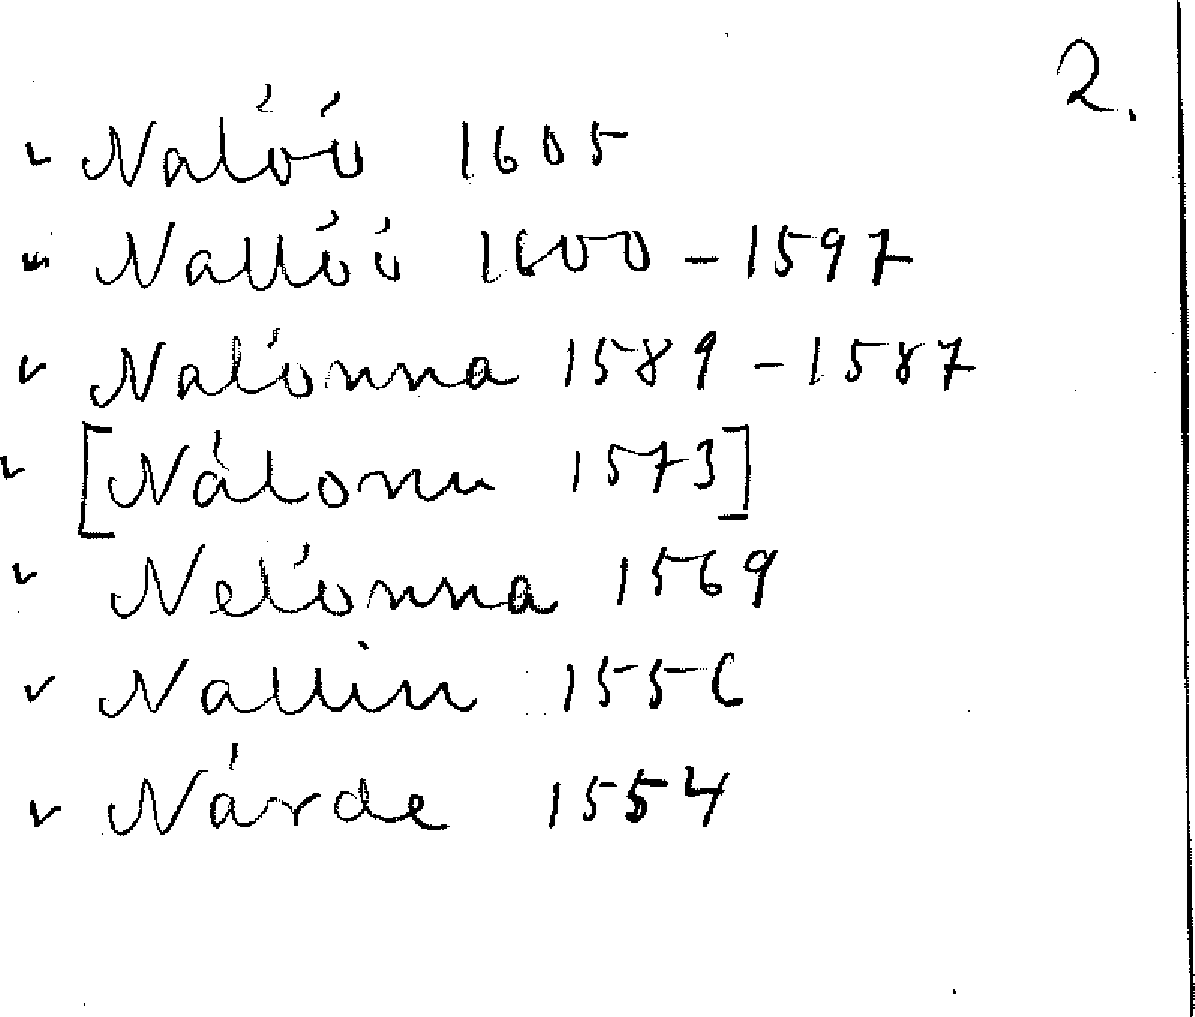 2.
Nalóú 1605
Nallóú 1600-1597
Nalónna 1589-1587
[Nálonu 1573]
Nelónna 1569
Nallin 1556
Nárde 1554